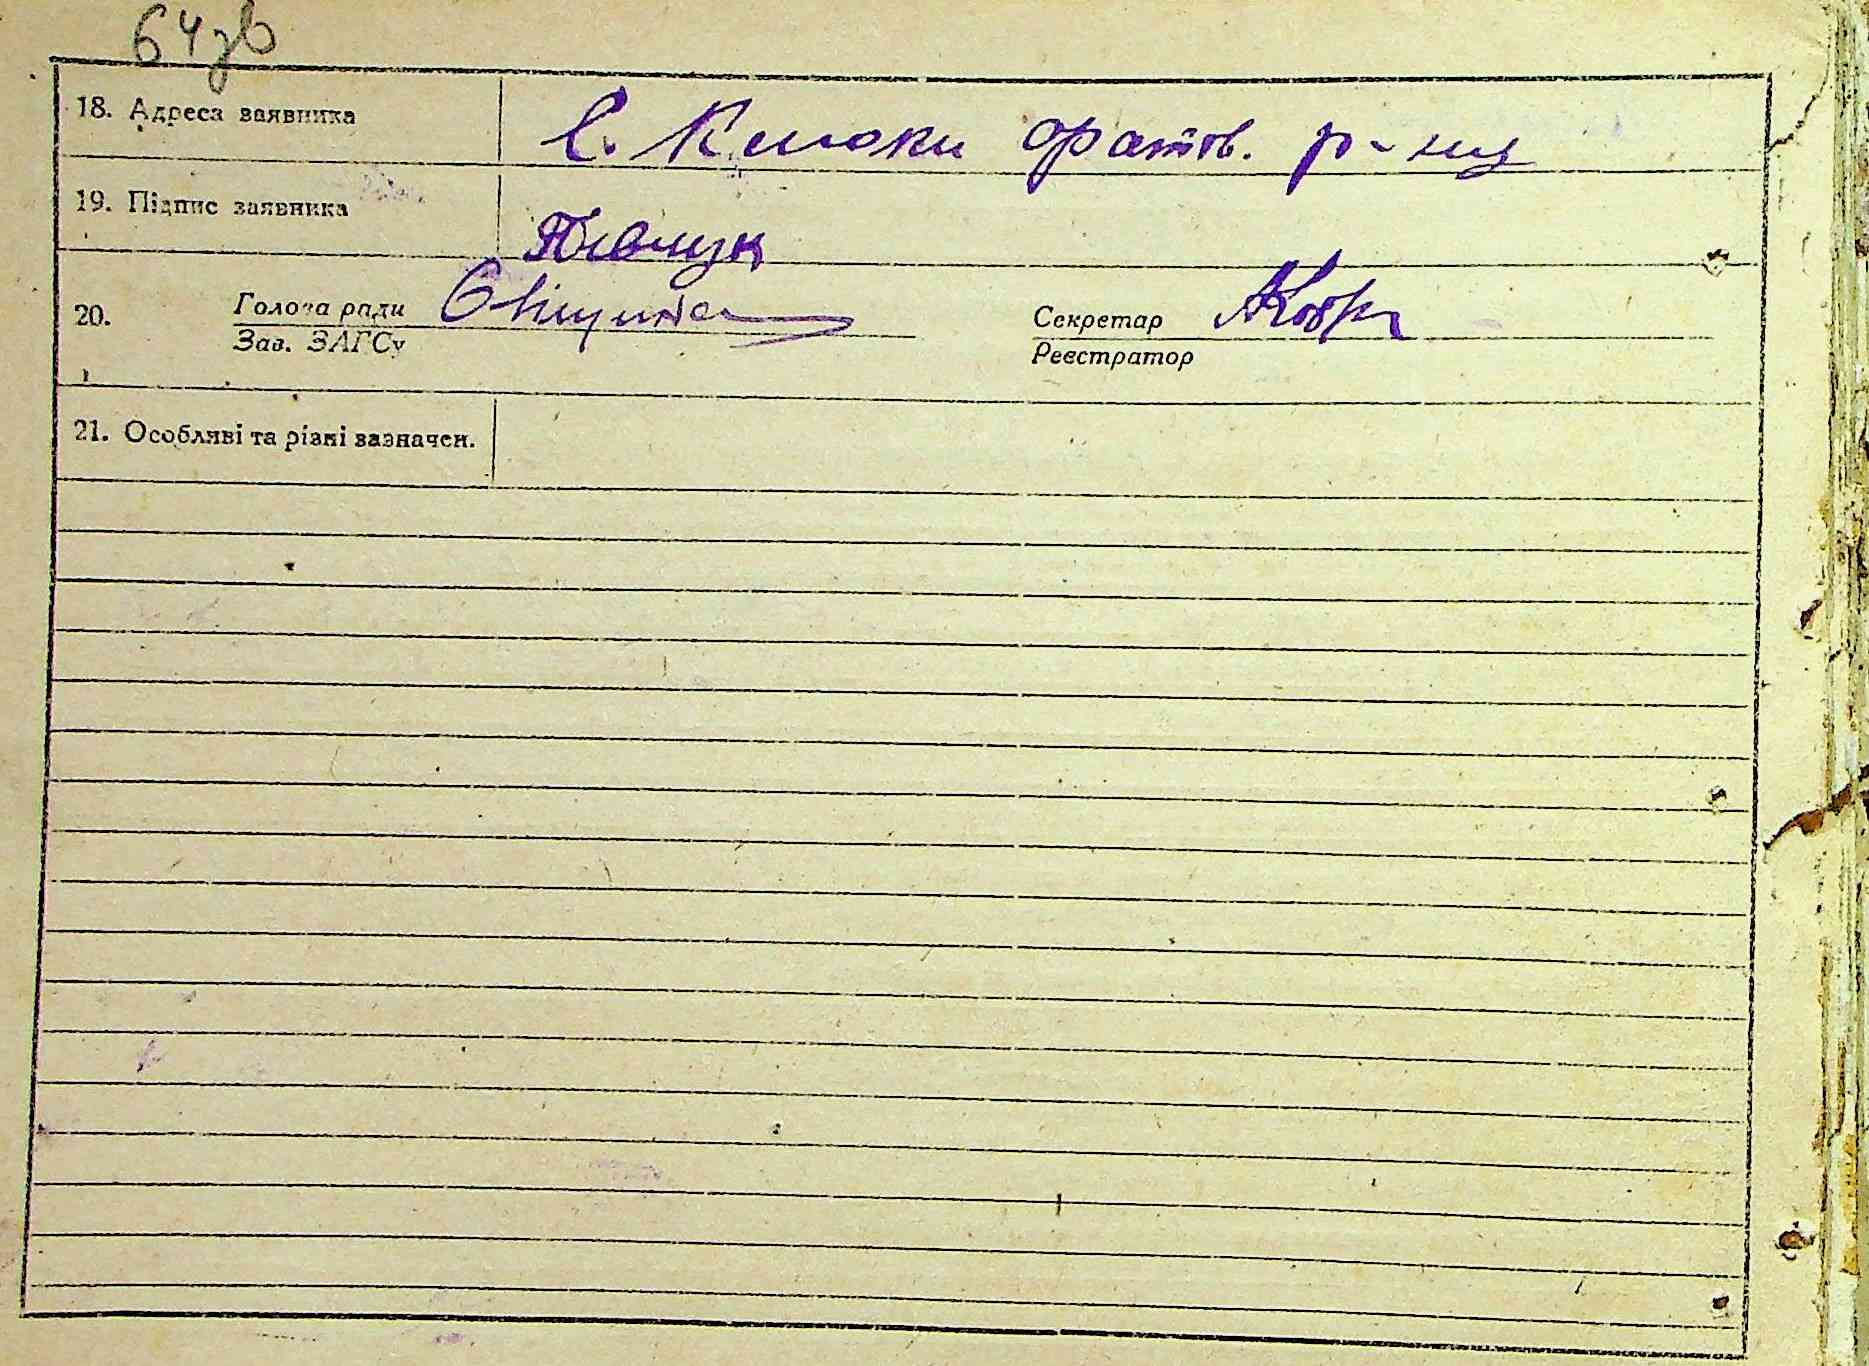 64зв
18. Адреса заявника С. Клюки оратов. р-ну
19. Підпис заявника
20. Голова ради Секретар
Зав. ЗАГСу Реєстратор
21. Особливі та різні зазначен.